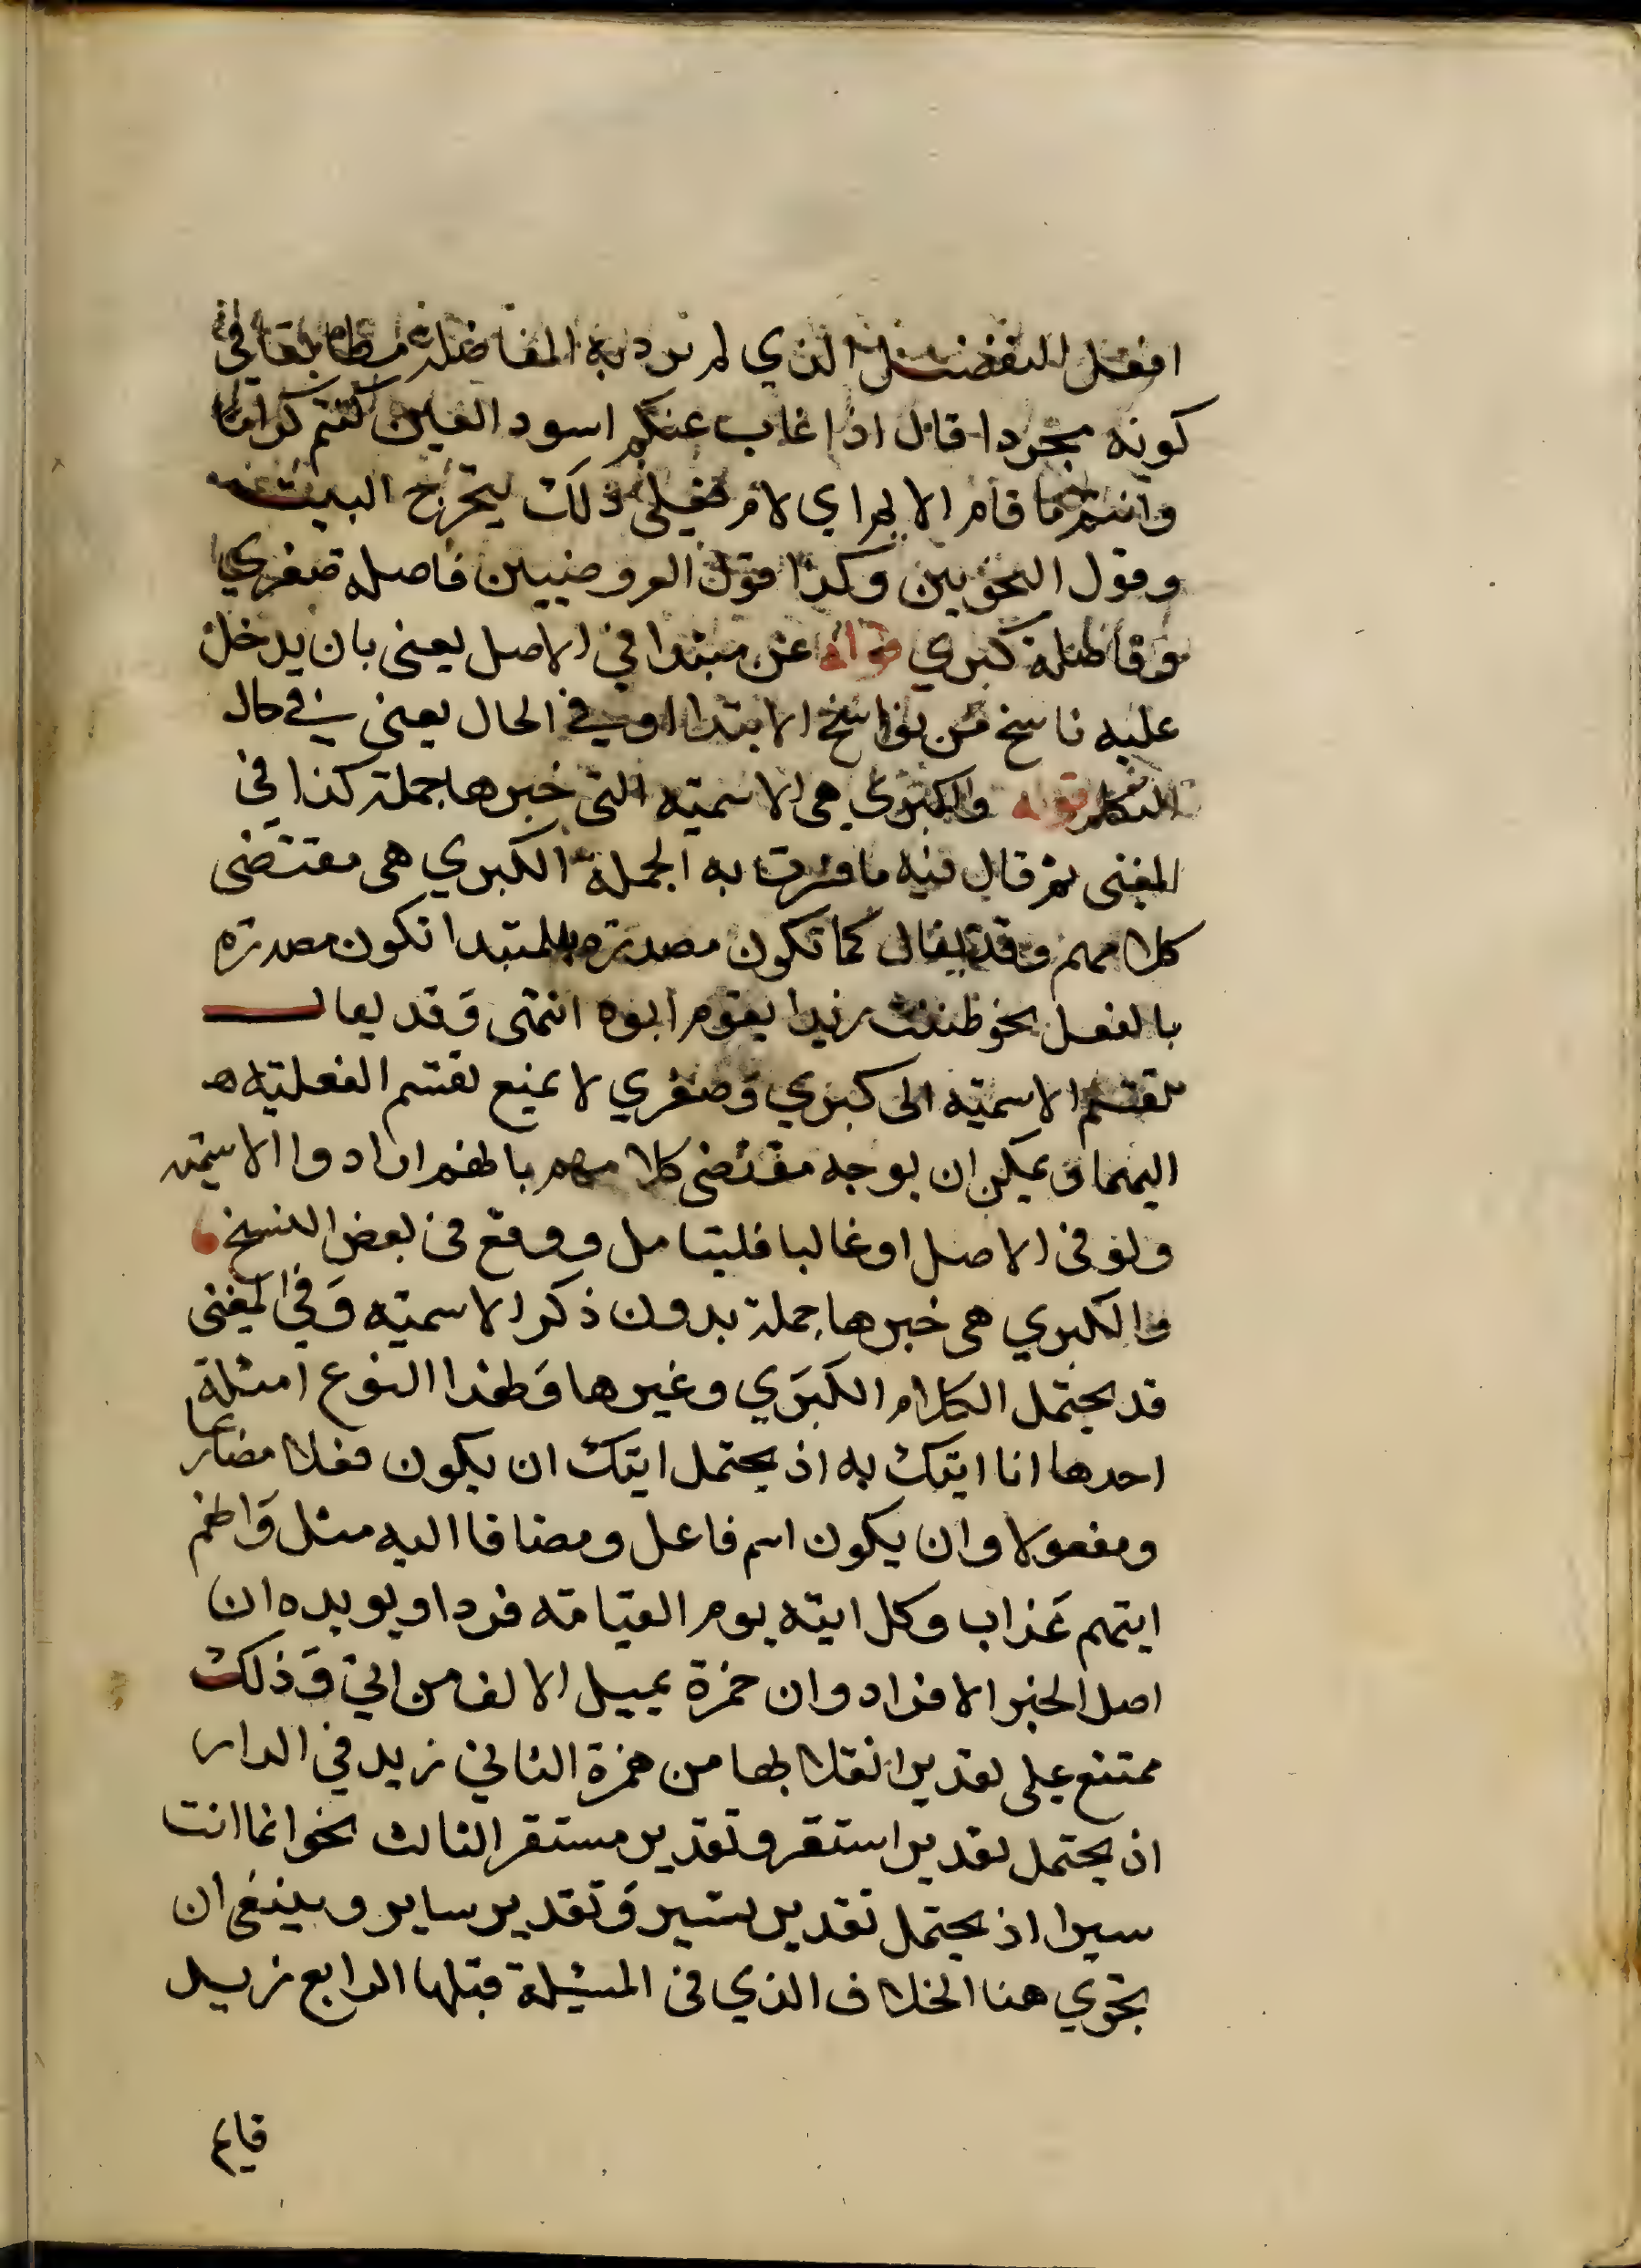 افعل التفضيل الذي لم يرد به المفاضلة مطابقا في
كونه مجردا قال اذا غاب عنكم اسود العين كنتم كراما
وانتم ما قام الايم اي لام فعلى ذلك يتخرج البيت
وقول النحويين وكذا قول العروضيين فاصلة صغري
وفاصلة كبري قوله عن مبتدا في الاصل يعنى بان يدخل
عليه ناسخ من نواسخ الابتدا او في الحال يعنى في حال
التكلم قوله والكبري هى الاسميه التى خبرها جملة كذا في
المغنى ثم قال فيه ما فسرت به الجملة الكبري هى مقتضى
كلامهم وقد يقال كما تكون مصدرة بالمبتدا تكون مصدرة
بالفعل نحو ظننت زيدا يقوم ابوه انتهى وقد يقال
تقسيم الاسميه الى كبري وصغري لا يمنع تقسيم الفعليه
اليهما ويمكن ان يوجه مقتضى كلامهم بانهم ارادوا الاسميه
ولو فى الاصل او غالبا فليتامل ووقع فى بعض النسخ
والكبري هى خبرها جملة بدون ذكر الاسميه وفي المغنى
قد يحتمل الكلام الكبري وغيرها ولهذا النوع امثلة
احدها انا اتيك به اذ يحتمل اتيك ان يكون فعلا مضارعا
ومفعولا وان يكون اسم فاعل ومضافا اليه مثل وانهم
اتيهم عذاب وكل اتيه يوم القيامة فردا ويويده ان
اصل الخبر الافراد وان حمزة يميل الالف من اتي وذلك
ممتنع على تقدير انقلابها من همزة الثاني زيد في الدار
اذ يحتمل تقدير استقر وتقدير مستقر الثالث نحو انما انت
سيرا اذ يحتمل تقدير تسير وتقدير ساير وينبغى ان
يجري هنا الخلاف الذي فى المسئلة قبلها الرابع زيد
قايم